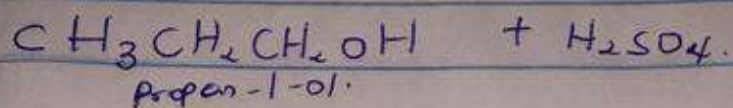 CH₃CH₂CH₂OH + H₂SO₄.
Propan-1-ol.